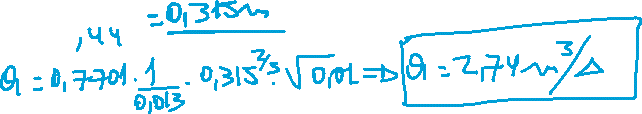 = 0,315m
,44
Q = 0,7701 · 1/0,013 · 0,315^2/3 · √0,01 ⇒ Q = 2,74 m³/s